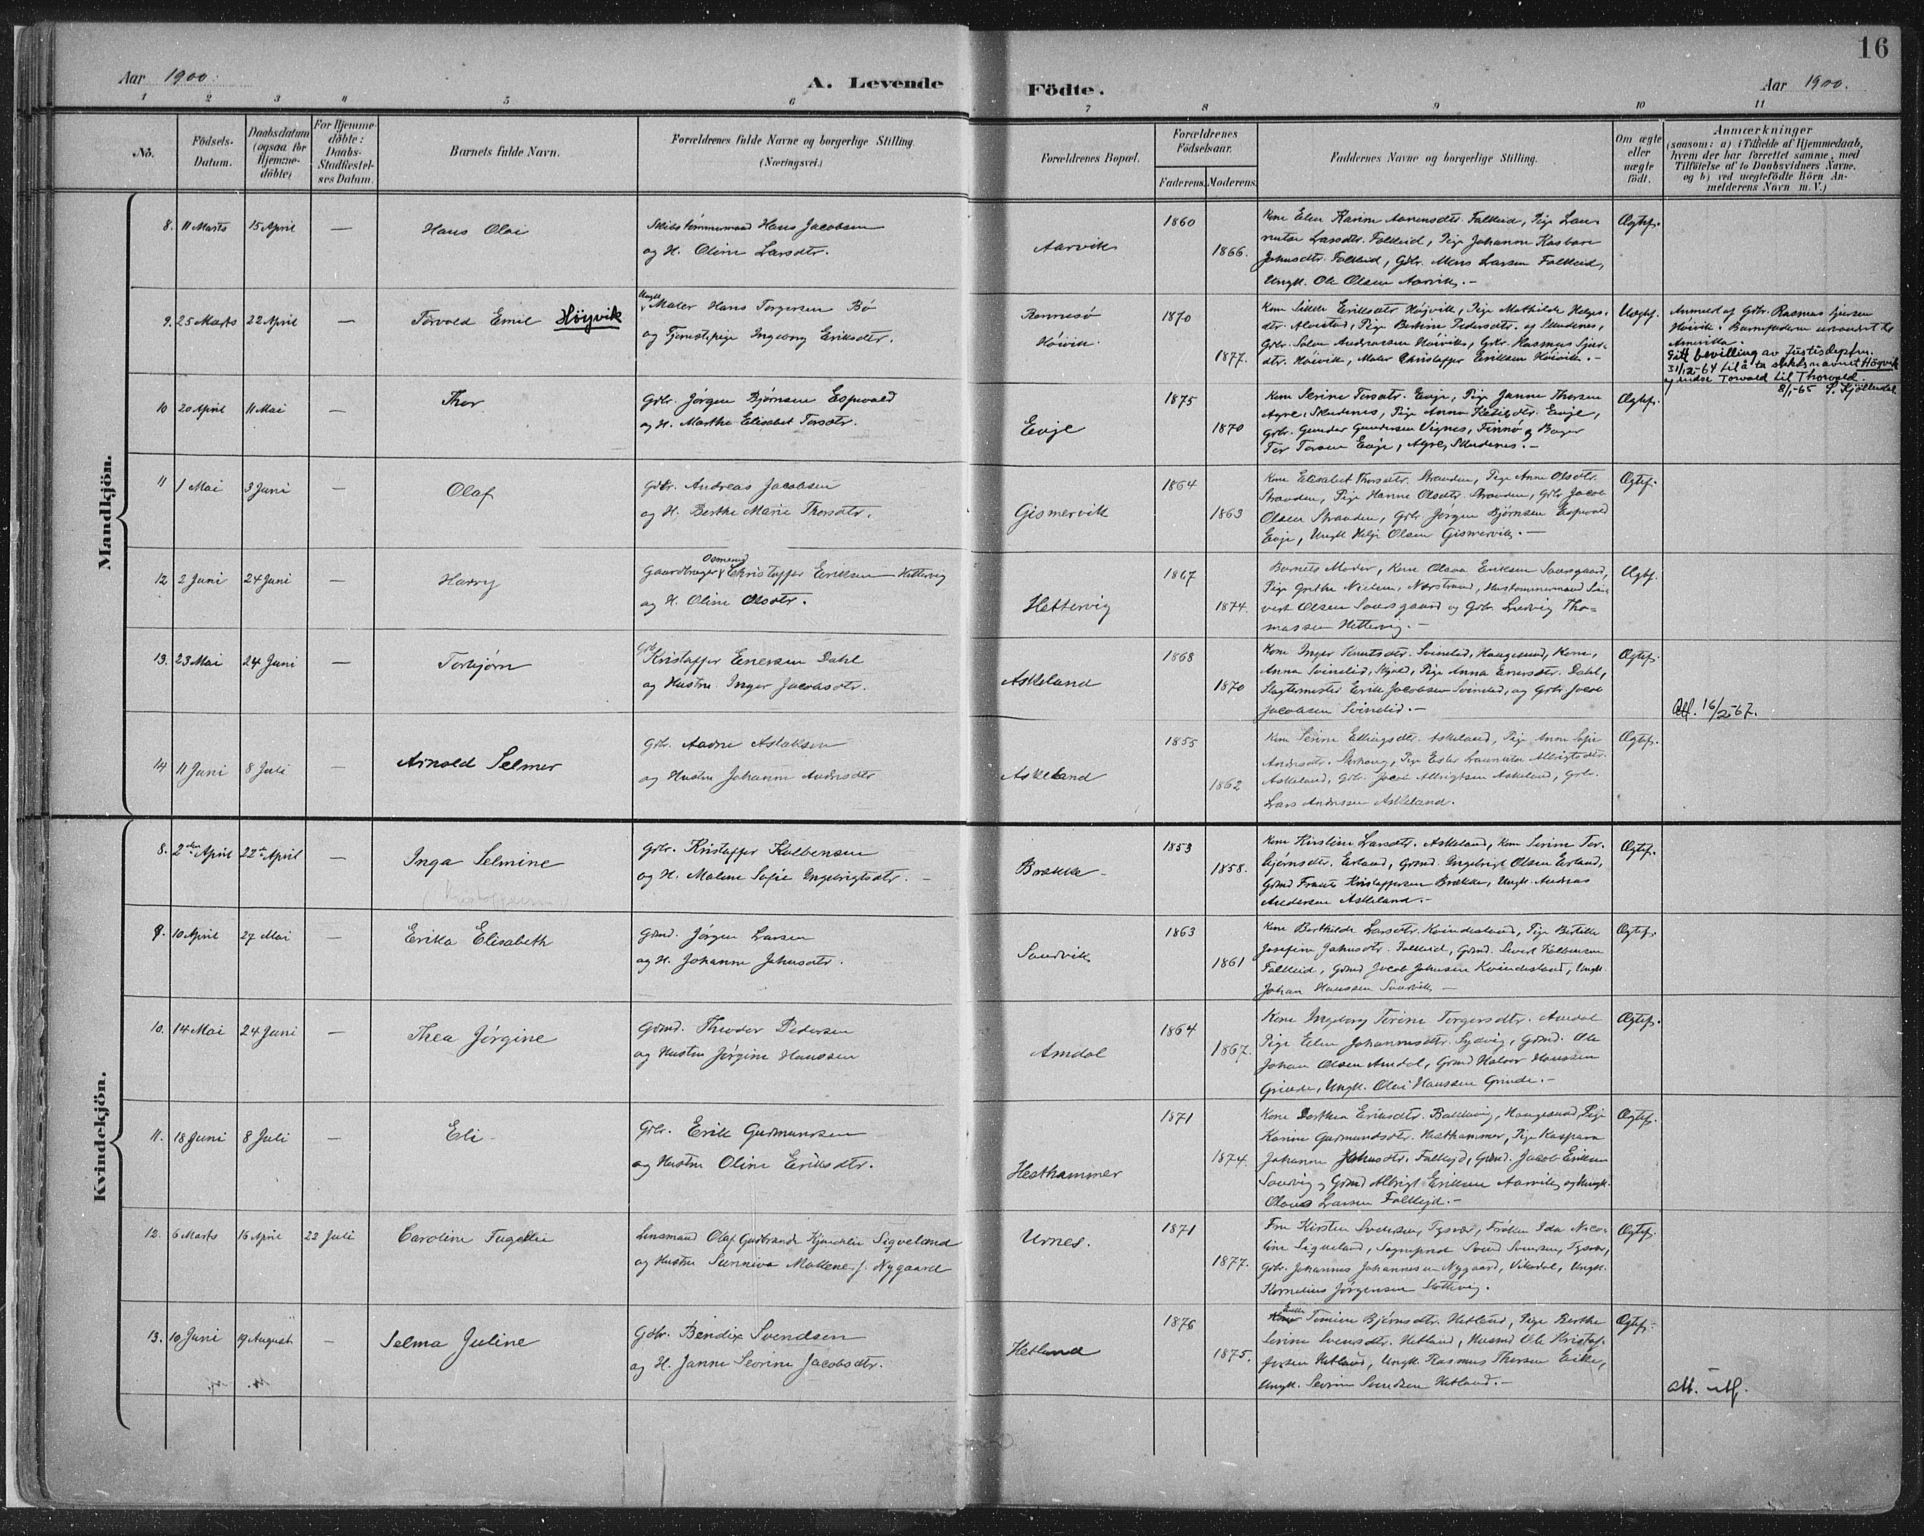 16
Aar 1900.
A. Levende
Födte.
Aar 1900.
1 2 3 4 5 6 7 8 9 10 11
No.
Födsels-
Datum.
Daabsdatum
(ogsaa for
Hjemme-
döbte)
For Hjemme-
döbte:
Daabs-
Stadfæstel-
ses Datum.
Barnets fulde Navn.
Forældrenes fulde Navne og borgerlige Stilling.
(Næringsvei.)
Forældrenes Bopæl.
Forældrenes
Födselsaar.
Faderens. Moderens.
Faddernes Navne og borgerlige Stilling.
Om ægte
eller
uægte
födt.
Anmærkninger
(saasom: a) i Tilfælde af Hjemmedaab,
hvem der har forrettet samme, med
Tilföielse af to Daabsvidners Navne,
og b) ved uægtefödte Börn An-
melderens Navn m. V.)
Mandkjön.
8. 11 Marts 15 April — Hans Olai
Skibstømmermand Hans Jacobsen
og H. Oline Larsdtr.
Aarvik
1860
1866.
Kone Elen Karine Aanensdtr. Falkeid, Pige Lau-
Larsdtr. Falkeid, Pige Johanne Kasbara
Johnsdtr. Falkeid, Gbr. Mons Larsen Falkeid,
Ungk. Ole Olsen Aarvik. —
Ægtef.
9. 25 Marts 22 April — Torvald Emil Höyvik
Ungk. Maler Hans Torgersen Bö
og Tjenestepige Ingeborg Eriksdtr.
Rennesö
Höivik.
1870
1877.
Kone Sille Eriksdtr. Høivik, Pige Mathilde Helges-
dtr. Alvestad, Pige Bertine Pedersdtr. og Skudenes,
Gbr. Salve Andreassen Höivik, Gbr. Rasmus Sjur-
Höivik, Maler Christoffer Eriksen Höivik. —
Uægtef.
Anmeld af Gbr. Rasmus Sjursen
Höivik. Barnefaderen udvandret til
Amerika.
Gitt bevilling av Justisdeptm.
31/12-64 til å ta slektsnavnet Höyvik
og endre Torvald til Thorvald.
8/1-65 S. Kjöllesdal
10 20 April 11 Mai Thor
Gbr. Jørgen Bjørnsen Espevold
og H. Marthe Elisabet Torsdtr.
Evje
1875
1870
Kone Serine Torsdtr. Evje, Pige Janne Thorsen
Agre, Skudenes, Pige Anna Ketilsdtr. Evje,
Gbr. Gunder Gundersen Vignes, Finnø og Bager
Tor Torsen Evje, Agre, Skudenes. —
Ægtef.
11 1 Mai 3 Juni — Olaf
Gbr. Andreas Jacobsen
og H. Berthe Marie Thorsdtr.
Gismervik
1864
1863
Kone Elisabet Thorsdtr. Stranden, Pige Anne Olsdtr.
Stranden, Pige Hanne Olsdtr. Stranden, Gbr. Jacob
Olsen Stranden, Gbr. Jørgen Bjørnsen Espevold
Evje, Ungk. Helge Olsen Gismervik. —
Ægtef.
12 2 Juni 24 Juni — Harry
Gaardbruger Christoffer Osmund Eriksen Hettervig
og H. Oline Olsdtr.
Hettervig
1867
1874.
Barnets Moder, Kone Olava Eriksen Saursgaard,
Pige Grethe Nielsen, Nærstrand, Hustømmermand Si-
vert Olsen Saursgaard og Gbr. Ludvig Tho-
massen Hettervig. —
Ægtef.
13. 23 Mai 24 Juni — Torbjørn
Gbr. Kristoffer Einersen Dahl
og Hustru Inger Jacobsdtr.
Askeland
1868
1870
Kone Inger Knutsdtr. Svinelid, Haugesund, Kone,
Anna Svinelid, Skjold, Pige Anna Enersdtr. Dahl,
Slagtermester Erik Jacobsen Svinelid, og Gbr. Jacob
Jacobsen Svinelid. —
Ægtef.
Att. 16/2-67.
14 11 Juni 8 Juli — Arnold Selmer
Gbr. Aadne Aslaksen
og Hustru Johanne Andersdtr
Askeland
1855
1862
Kone Serine Ellingsdtr. Askeland, Pige Anne Sofie
Andersdtr. Pige Ester Laurentse Albrigtsdtr.
Askeland, Gbr. Jacob Albrigtsen Askeland, Gbr.
Lars Andersen Askeland.
Ægtef.
Kvindekjön.
8. 2den April 22de April — Inga Selmine
(Kristoffersen)
Gbr. Kristoffer Kolbensen
og H. Malene Sofie Ingebrigtsdtr. —
Brække —
1853
1858.
Kone Kirstine Larsdtr. Askeland, Kone Serine Tor-
bjørnsdtr. Erland, Gmd. Ingebrigt Olsen Erland,
Gmd Frants Kristoffersen Brække, Ungk. Andreas
Andersen Askeland. —
Ægtef.
9. 10 April 27 Mai — Erika Elisabeth
Gmd. Jørgen Larsen
og H. Johanne Johnsdtr.
Sandvik
1863
1861
Kone Berthilde Larsdtr. Kvindesland, Pige Bertille
Josefine Johnsdtr. Falkeid, Gmd. Sivert Kolbensen
Falkeid, Gmd Jacob Johnsen Kvindesland, Ungk.
Johan Hanssen Sandvik —
Ægtef.
10. 14 Mai 24 Juni — Thea Jørgine
Gmd. Theodor Pedersen
og Hustru Jørgine Hanssen
Amdal
1864
1867.
Kone Ingeborg Terine Torgersdtr. Amdal
Pige Elen Johannesdtr. Sydvig, Gmd. Ole
Johan Olsen Amdal, Gmd Halvor Hanssen
Grinde, Ungk. Olai Hanssen Grinde. —
Ægtef.
11. 18 Juni 8 Juli — Eli
Gbr. Erik Gudmundsen
og Hustru Oline Eriksdtr.
Hesthammer
1871
1874.
Kone Dorthea Eriksdtr. Haugesund, Pige
Karine Gudmundsdtr. Hesthammer, Pige Kaspara
Johanne Johnsdtr. Falkejd, Gmd. Jacob Eriksen
Sandvig og Gmd Albrigt Eriksen Aarvik og Ungk.
Olaus Larsen Falkejd. —
Ægtef.
12. 6 Marts 16 April 22 Juli Caroline Fugellie
Lensmand Olaf Gudbrand Sigveland
og Hustru Sunniva Mallene f. Nygaard
Urnes.
1871
1877.
Fru Kirsten Svendsen, Tysvær, Frøken Ida Nico-
line Sigveland, Svend Svensen, Tysvær,
Gbr. Johannes Johannesen Nygaard, Vikedal, Ungk.
Kornelius Jørgensen
Ægtef.
13. 10 Juni 19 August — Selma Juline
Gbr. Bendix Svendsen
og H. Janne Severine Jacobsdtr.
Hetland
1876
1875.
Enke Tomine Bjørnsdtr. Hetland, Pige Berthe
Serine Svensdtr. Hetland, Husmd Ole Kristof-
fersen Hetland, Ungk. Rasmus Thorsen Eike,
Ungk. Severin Svendsen Hetland. —
Ægtef.
att. utf.